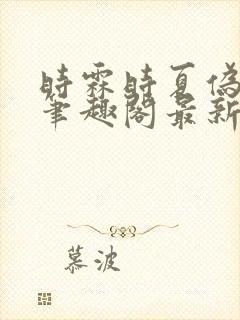 時霖時夏偽
筆趣閣最新
慕波